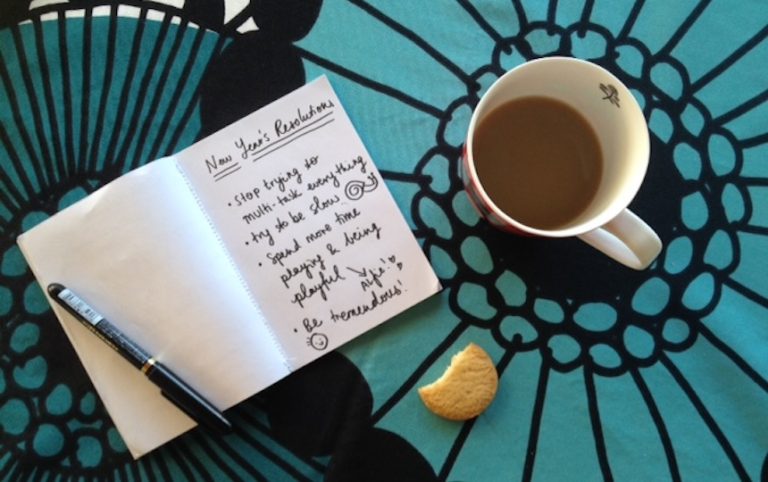 New Year's Resolutions
• Stop trying to
multi-task everything
• try to be slow
• Spend more time
playing & being
playful
Alfie!
• Be tremendous!